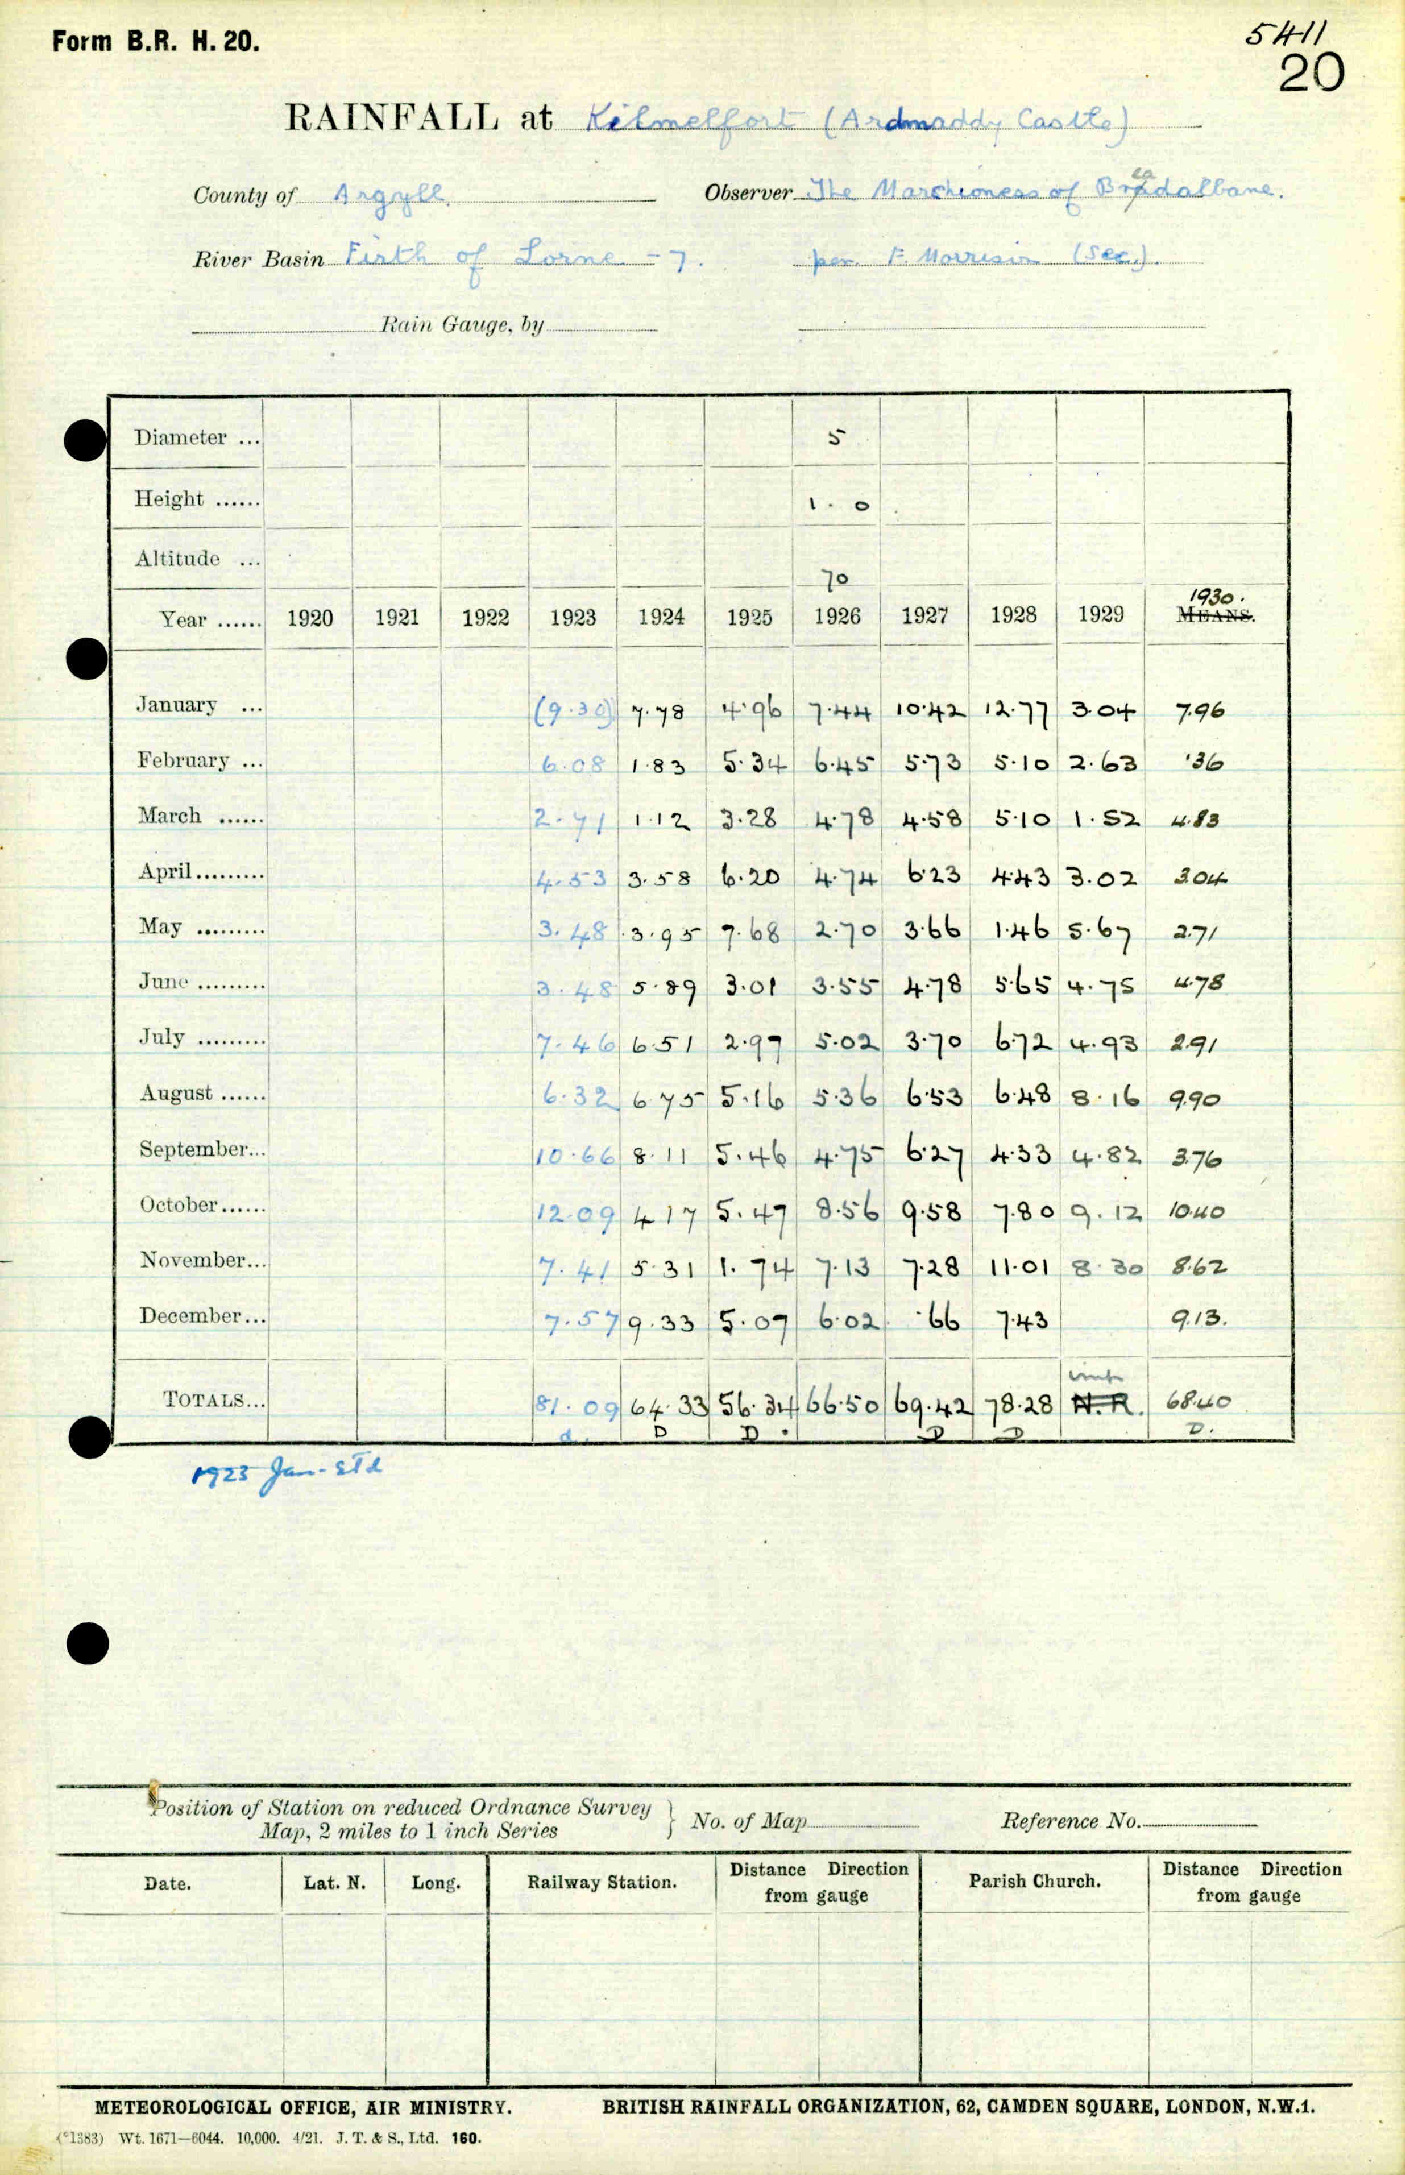 Form B.R. H. 20.
5411
20
RAINFALL at Kilmelfort (Ardmaddy Castle)
County of Argyll. Observer The Marchioness of Breadalbane.
River Basin Firth of Lorne - 7. per F. Morrison (Sec.).
Rain Gauge, by
Diameter ... 5
Height ...... 1 . 0
Altitude ... 70
1930.
Year ...... 1920 1921 1922 1923 1924 1925 1926 1927 1928 1929 MEANS.
January ... (9.30) 7.78 4.96 7.44 10.42 12.77 3.04 7.96
February ... 6.08 1.83 5.34 6.45 5.73 5.10 2.63 .36
March ...... 2.71 1.12 3.28 4.78 4.58 5.10 1.52 4.83
April......... 4.53 3.58 6.20 4.74 6.23 4.43 3.02 3.04
May ......... 3.48 3.95 7.68 2.70 3.66 1.46 5.67 2.71
June ......... 3.48 5.89 3.01 3.55 4.78 5.65 4.75 4.78
July ......... 7.46 6.51 2.97 5.02 3.70 6.72 4.93 2.91
August ...... 6.32 6.75 5.16 5.36 6.53 6.48 8.16 9.90
September... 10.66 8.11 5.46 4.75 6.27 4.33 4.82 3.76
October...... 12.09 4.17 5.47 8.56 9.58 7.80 9.12 10.40
November... 7.41 5.31 1.74 7.13 7.28 11.01 8.30 8.62
December... 7.57 9.33 5.07 6.02 .66 7.43 9.13.
TOTALS... 81.09 64.33 56.34 66.50 69.42 78.28 N.R. 68.40
d. D D. D D D.
1923 Jan - STd
Position of Station on reduced Ordnance Survey
Map, 2 miles to 1 inch Series } No. of Map Reference No.
Date. Lat. N. Long. Railway Station. Distance Direction from gauge Parish Church. Distance Direction from gauge
METEOROLOGICAL OFFICE, AIR MINISTRY. BRITISH RAINFALL ORGANIZATION, 62, CAMDEN SQUARE, LONDON, N.W.1.
(*1383) Wt. 1671—6044. 10,000. 4/21. J. T. & S., Ltd. 160.